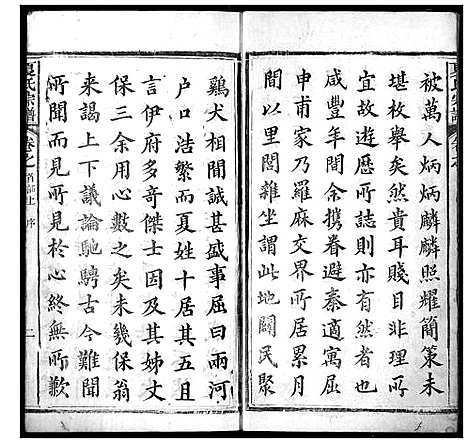 被萬人炳炳麟麟照耀簡策未
堪枚舉矣然貴耳賤目非理所
宜故遊歷所誌則亦從其者也
咸豐年間余攜眷避秦適寓屈
申甫家乃羅麻交界所居累月
間以里閈雜坐謂此地闢民聚
夏氏宗譜
卷之首
雞犬相聞誠甚盛事屈曰兩河
户口浩繁而夏姓十居其五且
言伊府多奇傑士因及其姊丈
保三余用心數之矣未幾保翁
來謁上下議論馳騁古今難聞
所聞而見所見於心終無所歉
夏氏宗譜
卷之首 上 序
二